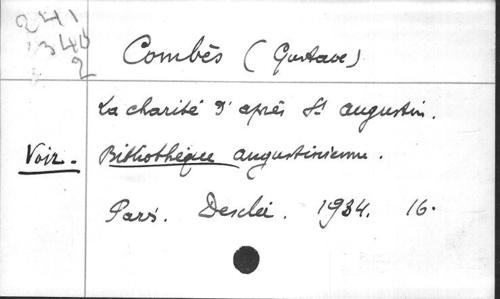 241
1340
2
Combès (Gustave)
La charité d'après St Augustin.
Voir. Bibliothèque augustinienne.
Paris. Desclée. 1934. 16.